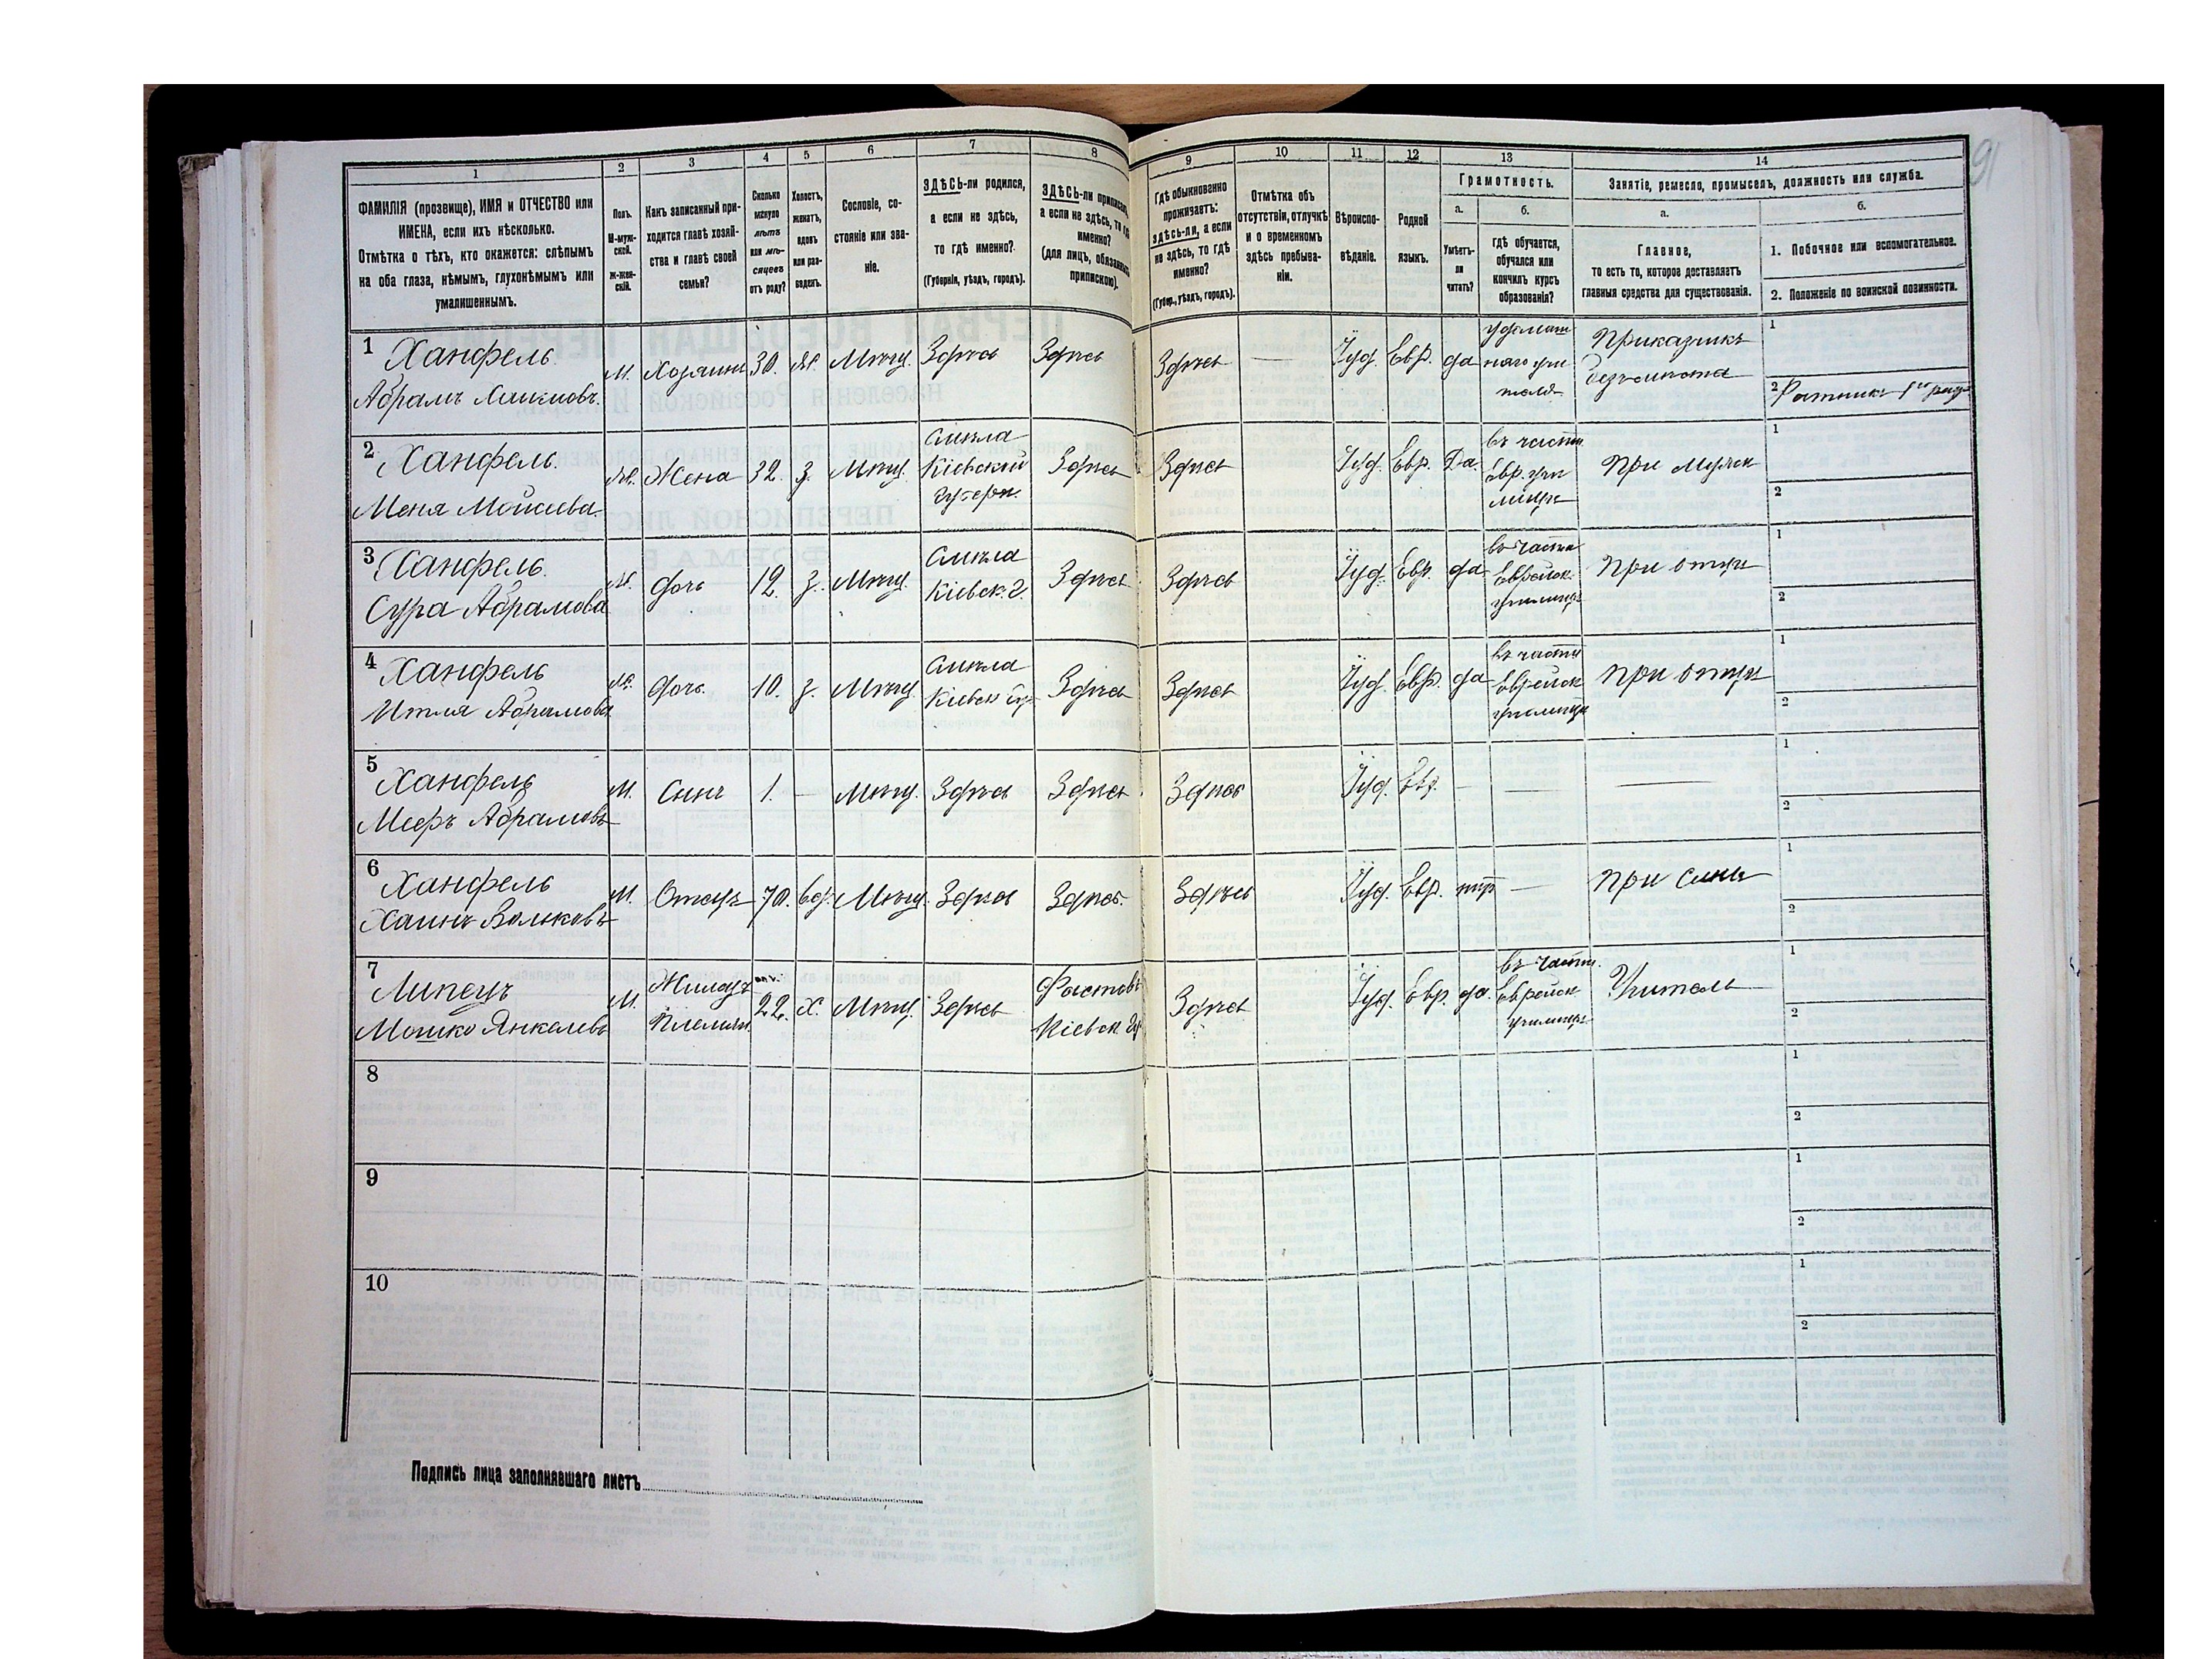 91
1 2 3 4 5 6 7 8 9 10 11 12 13 14
ФАМИЛІЯ (прозвище), ИМЯ и ОТЧЕСТВО или ИМЕНА, если ихъ нѣсколько.
Отмѣтка о тѣхъ, кто окажется: слѣпымъ на оба глаза, нѣмымъ, глухонѣмымъ или умалишеннымъ.
Полъ. М-мужской. Ж-женскій.
Какъ записанный приходится главѣ хозяйства и главѣ своей семьи?
Сколько минуло лѣтъ или мѣсяцевъ отъ роду?
Холостъ, женатъ, вдовъ или разведенъ.
Сословіе, состояніе или званіе.
ЗДѢСЬ-ли родился, а если не здѣсь, то гдѣ именно? (Губернія, уѣздъ, городъ).
ЗДѢСЬ-ли приписанъ, а если не здѣсь, то гдѣ именно? (для лицъ, обязанныхъ припискою).
Гдѣ обыкновенно проживаетъ: здѣсь-ли, а если не здѣсь, то гдѣ именно? (Губер., уѣздъ, городъ).
Отмѣтка объ отсутствіи, отлучкѣ и о временномъ здѣсь пребываніи.
Вѣроисповѣданіе.
Родной языкъ.
Грамотность.
а. Умѣетъ-ли читать?
б. Гдѣ обучается, обучался или кончилъ курсъ образованія?
Занятіе, ремесло, промыселъ, должность или служба.
а. Главное, то есть то, которое доставляетъ главныя средства для существованія.
б.
1. Побочное или вспомогательное.
2. Положеніе по воинской повинности.
1 Ханфель Абрамъ М. Хозяинъ 30. Ж. Мѣщ. Здѣсь Здѣсь Здѣсь — Іуд. Евр. да Приказчикъ 1
2 Ратникъ 1го разр.
2 Ханфель. Меня Моисеева. Ж. Жена 32. З. Мѣщ. Смѣла Кіевской Губерн. Здѣсь Здѣсь Іуд. Евр. Да. въ частн. Евр. училищѣ При мужѣ 1
2
3 Ханфель. Сура Абрамова Ж. Дочь 12. З. Мѣщ. Смѣла Кіевск. г. Здѣсь Здѣсь Іуд. Евр. да въ частн. Еврейск. училищѣ При отцѣ 1
2
4 Ханфель Итля Абрамова Ж. Дочь. 10. З. Мѣщ. Смѣла Кіевск. гу. Здѣсь Здѣсь Іуд. Евр. да въ частн. Еврейск. училищѣ При отцѣ 1
2
5 Ханфель Мееръ Абрамовъ М. Сынъ 1. — Мѣщ. Здѣсь Здѣсь Здѣсь Іуд. Евр. — — — 1
2
6 Ханфель Хаимъ Вольковъ М. Отецъ 70. вд. Мѣщ. Здѣсь Здѣсь. Здѣсь Іуд. Евр. нѣт — При сынѣ 1
2
7 Липецъ Мошко Янкелевъ М. Жилецъ Племян. 22. Х. Мѣщ. Здѣсь Фастовъ Кіевск. Гу. Здѣсь Іуд. Евр. да. въ частн. Еврейск. училищѣ Учитель 1
2
8 1
2
9 1
2
10 1
2
Подпись лица заполнявшаго листъ